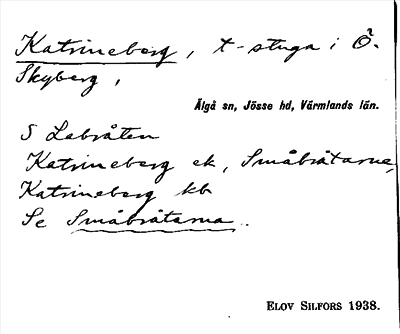 Katrineberg, t-stuga i Ö.
Skyberg,
Älgå sn, Jösse hd, Värmlands län.
S Labråten
Katrineberg ek, Småbråtarna,
Katrineberg kb
Se Småbråtarna.
ELOV SILFORS 1938.